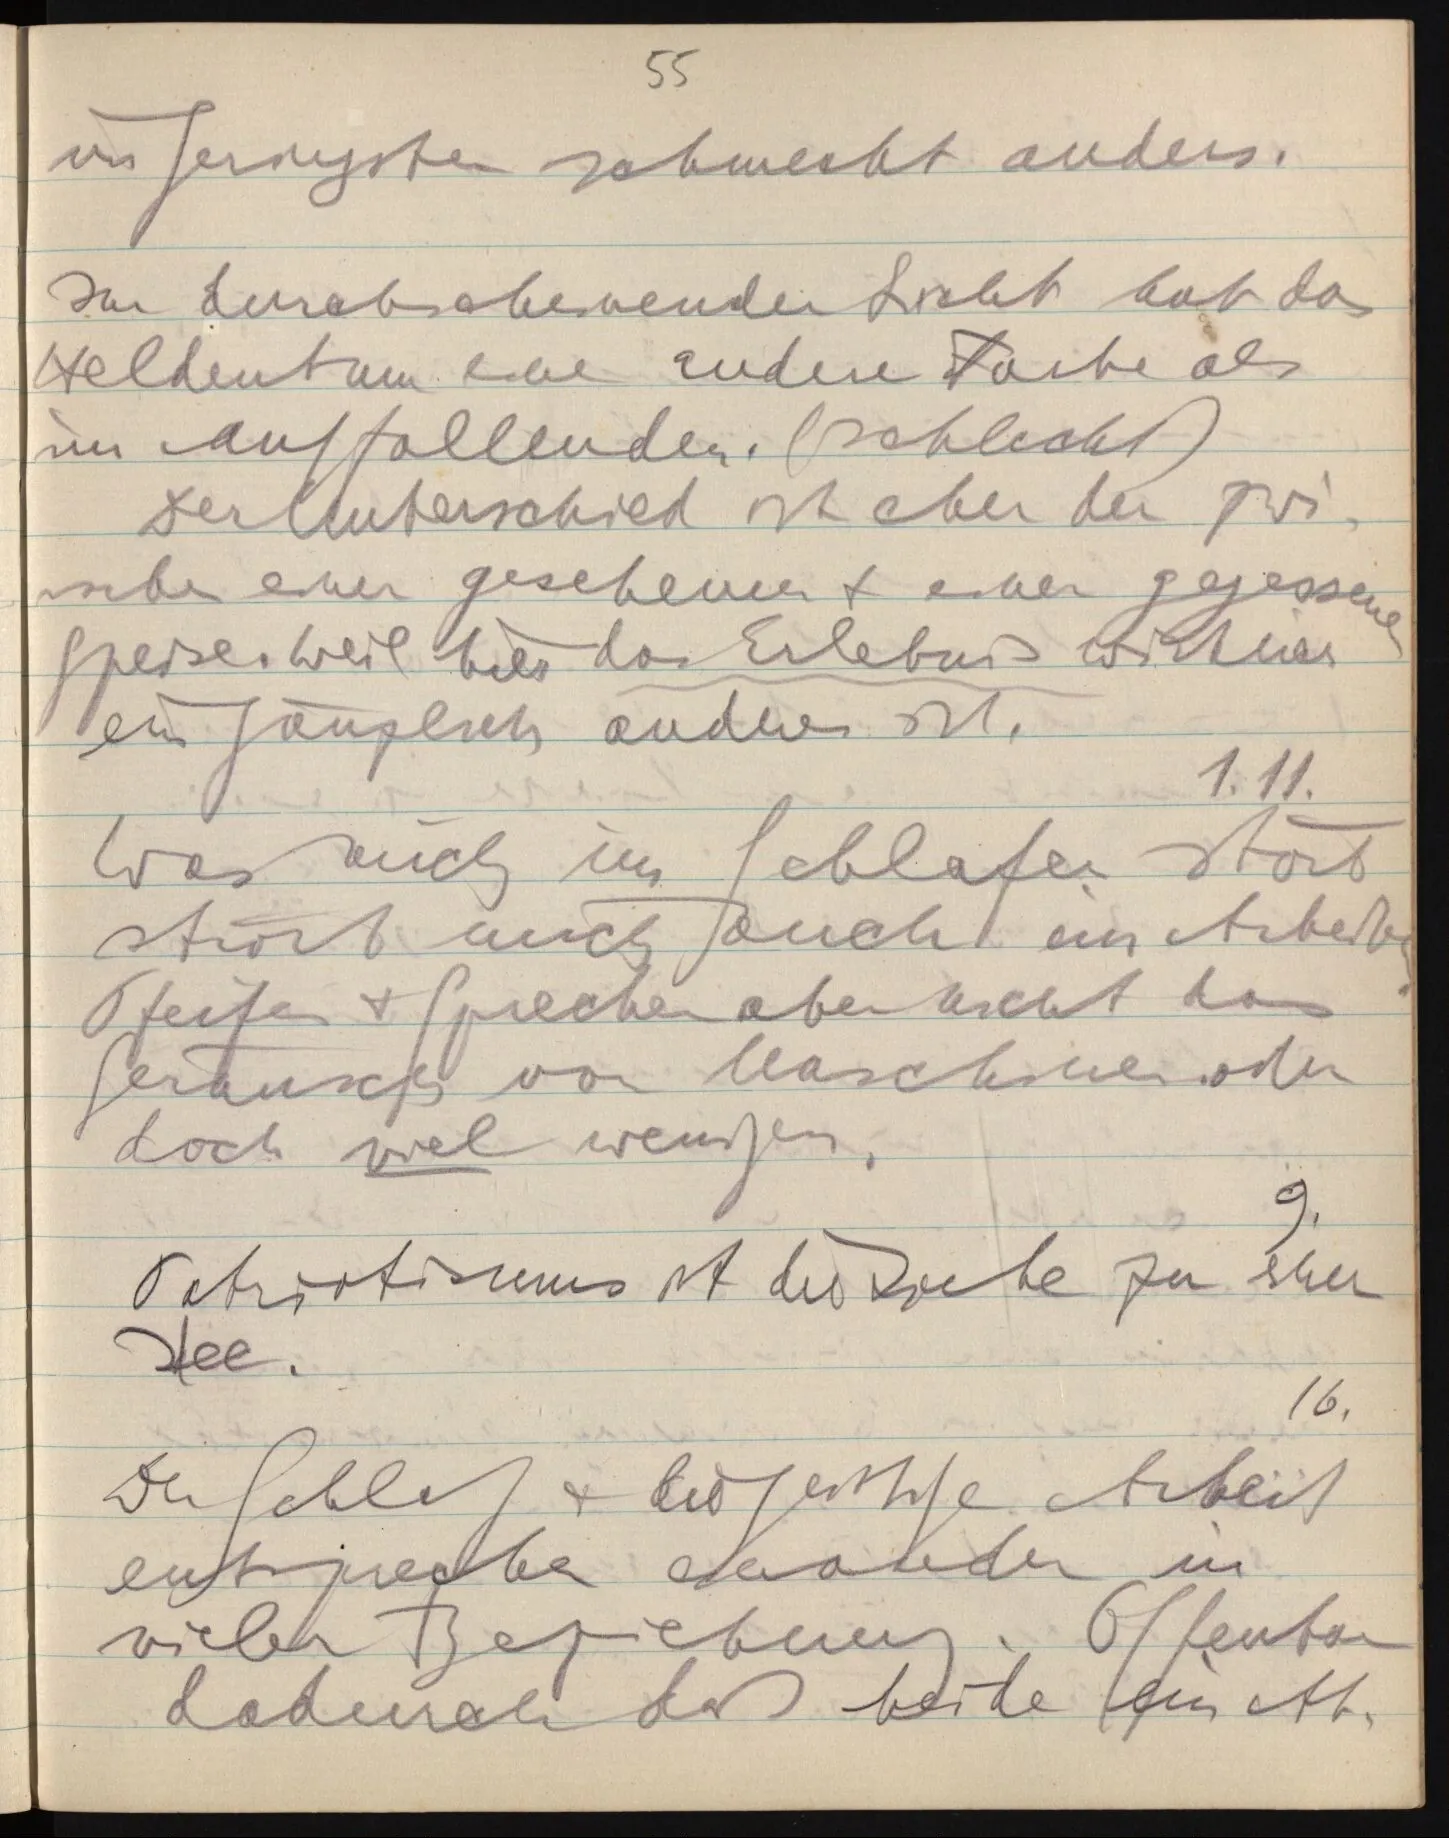 55
im Geringsten schmeckt anders.
Im durchscheinenden Licht hat das
Heldentum eine andere Farbe als
im auffallenden. (schlecht)
Der Unterschied ist eher der zwi-
schen einer gesehenen & einer gegessenen
Speise. Weil hier das Erlebnis wirklich
ein gänzlich anderes ist.
1.11.
Was mich im Schlafen stört
stört mich auch im Arbeiten.
Pfeifen & Sprechen aber nicht das
Geräusch von Maschinen oder
doch viel weniger.
9.
Patriotismus ist die Liebe zu einer
Idee.
16.
Der Schlaf & die geistige Arbeit
entsprechen einander in
vieler Beziehung. Offenbar
dadurch daß beide ein Ab-